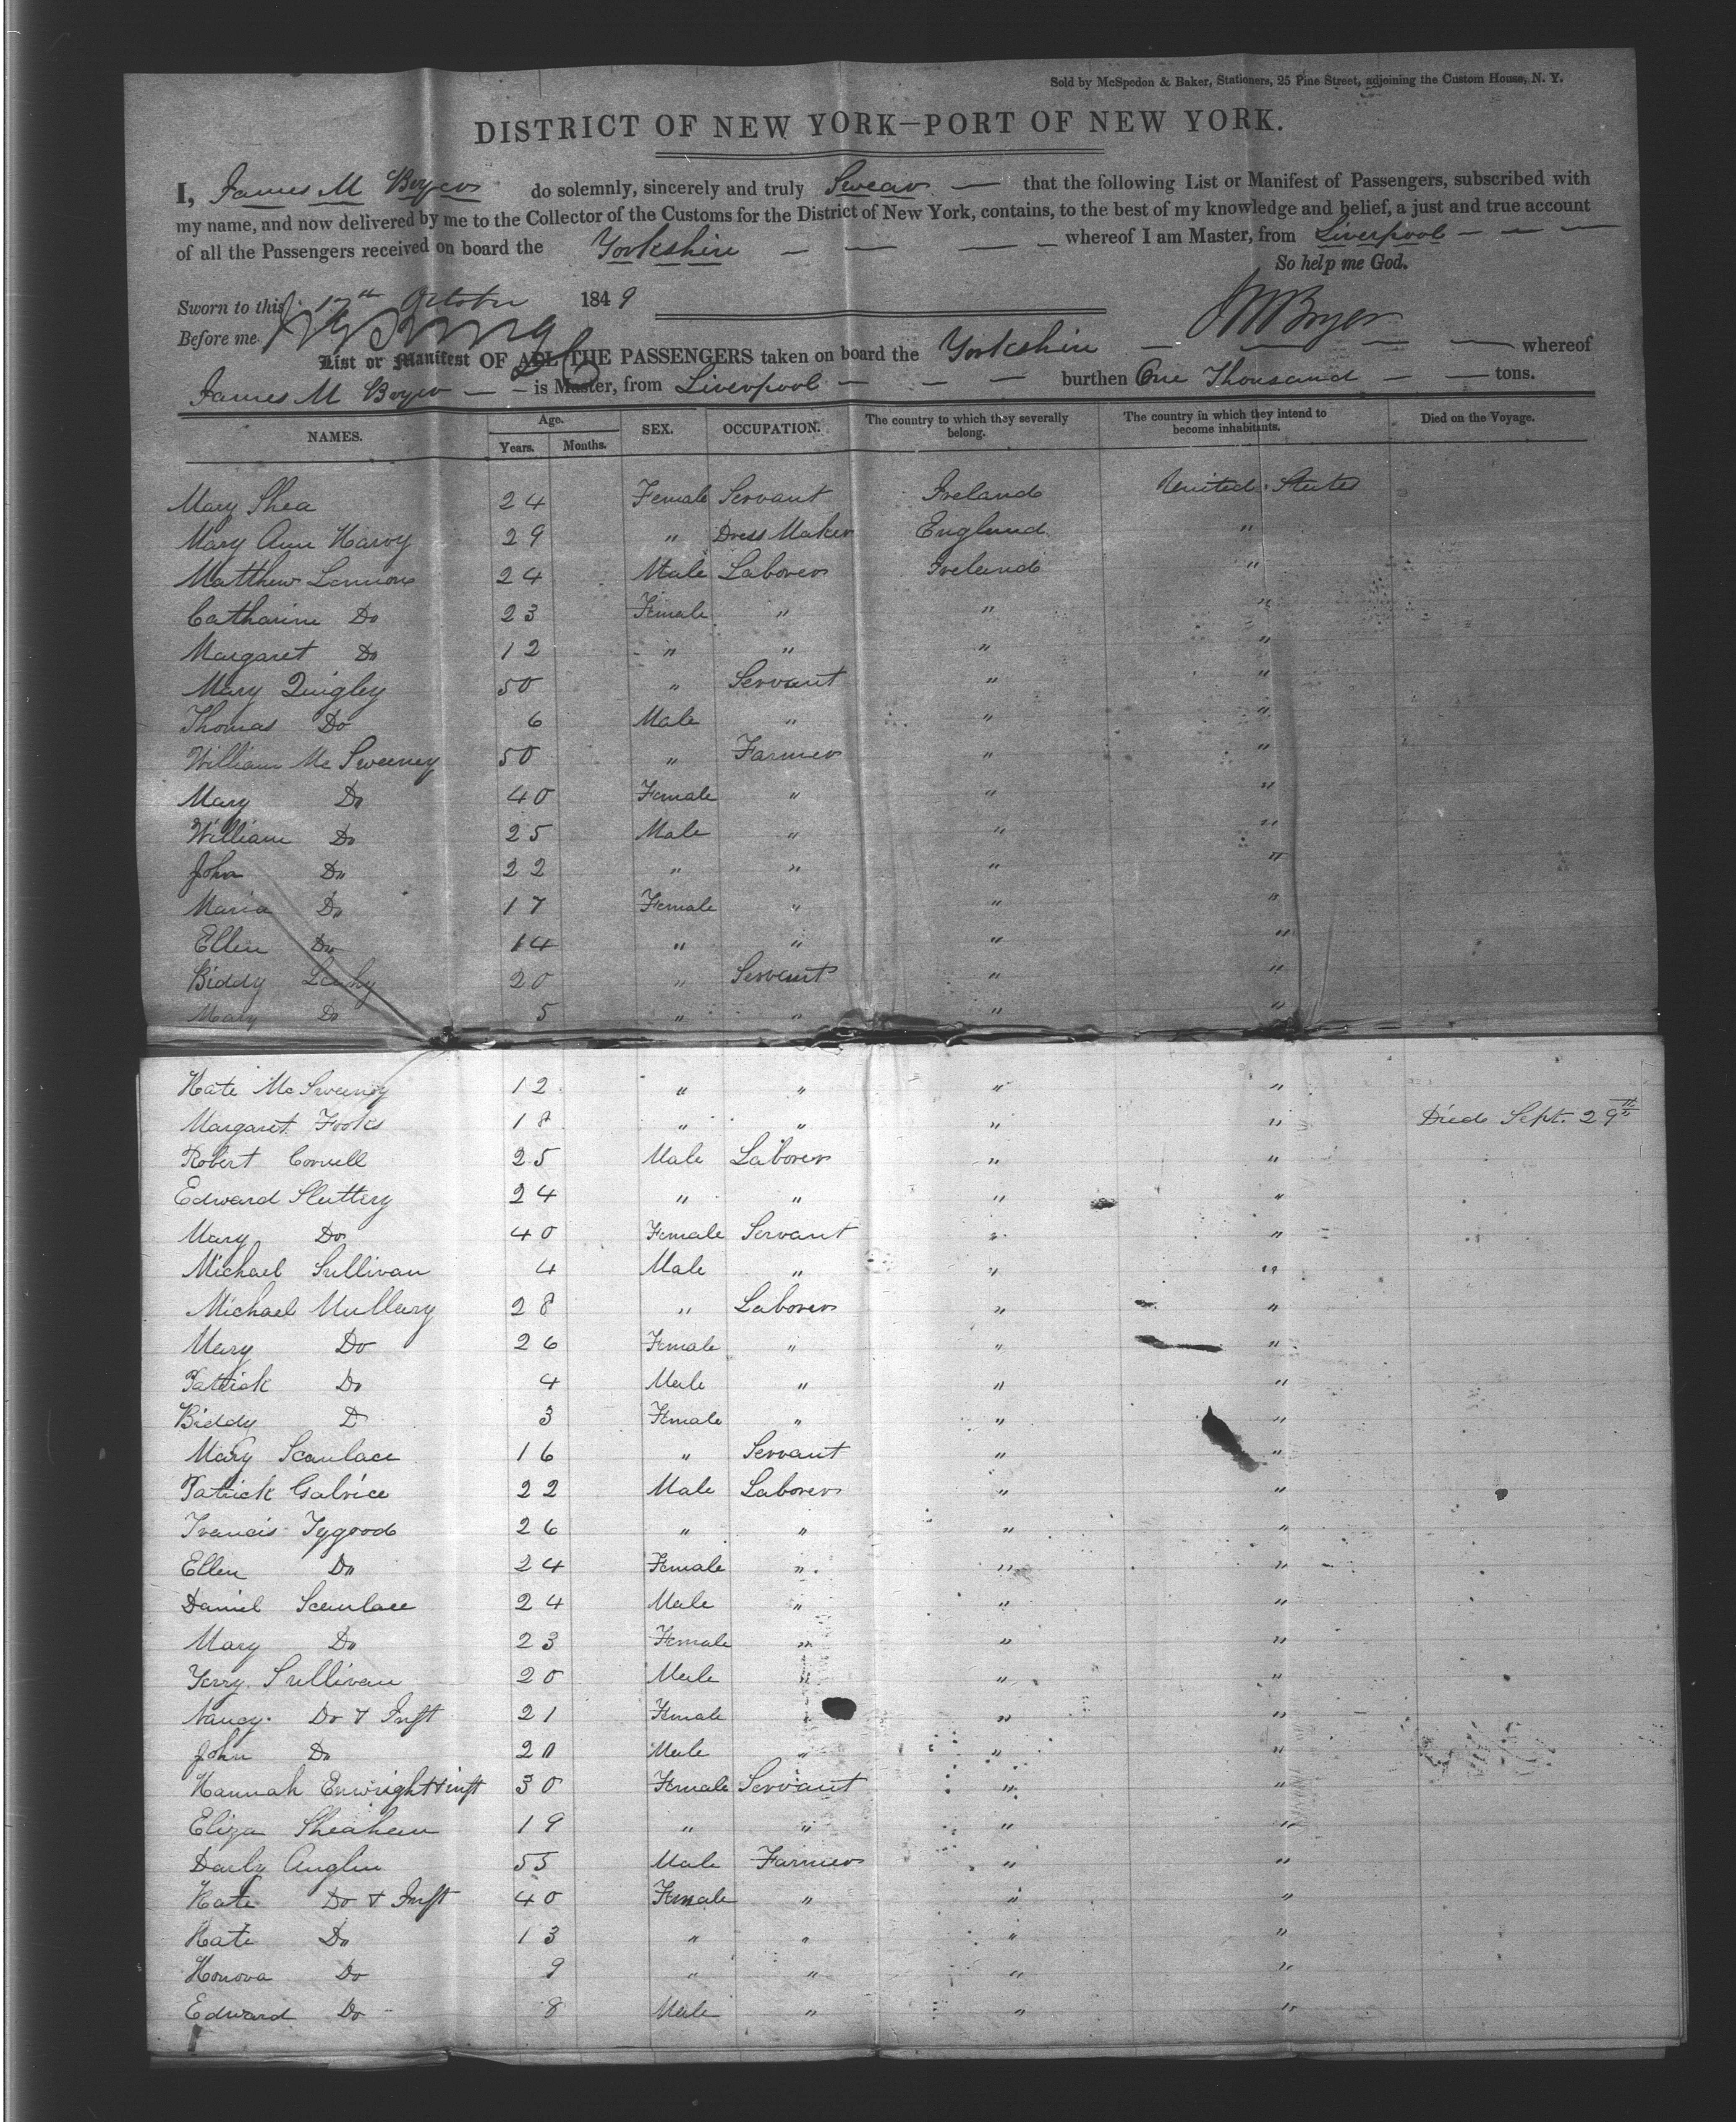 Sold by McSpedon & Baker, Stationers, 25 Pine Street, adjoining the Custom House, N. Y.
DISTRICT OF NEW YORK—PORT OF NEW YORK.
I, James M Bryer do solemnly, sincerely and truly Swear — that the following List or Manifest of Passengers, subscribed with
my name, and now delivered by me to the Collector of the Customs for the District of New York, contains, to the best of my knowledge and belief, a just and true account
of all the Passengers received on board the Yorkshire — — — — whereof I am Master, from Liverpool — — —
So help me God.
Sworn to this 17th October 1849
Before me
List or Manifest OF ALL THE PASSENGERS taken on board the Yorkshire — — — — whereof
James M Bryer — — is Master, from Liverpool — — — burthen One Thousand — — tons.
NAMES. Age. Years. Months. SEX. OCCUPATION. The country to which they severally belong. The country in which they intend to become inhabitants. Died on the Voyage.
Mary Shea 24 Female Servant Ireland United States
Mary Ann Harvy 29 " Dress Maker England "
Matthew Lennon 24 Male Laborer Ireland "
Catharine Do 23 Female " " "
Margaret Do 12 " " " "
Mary Quigley 50 " Servant " "
Thomas Do 6 Male " " "
William McSweeney 50 " Farmer " "
Mary Do 40 Female " " "
William Do 25 Male " " "
John Do 22 " " " "
Maria Do 17 Female " " "
Ellen Do 14 " " " "
Biddy Leahy 20 " Servant " "
Mary Do 5 " " " "
Kate McSweeney 12 " " " "
Margaret Fooks 18 " " " " Died Sept. 29th
Robert 25 Male Laborer " "
Edward Slattery 24 " " " "
Mary Do 40 Female Servant " "
Michael Sullivan 4 Male " " "
Michael Mullany 28 " Laborer " "
Mary Do 26 Female " " "
Patrick Do 4 Male " " "
Biddy D 3 Female " " "
Mary Scanlace 16 " Servant " "
Patrick Galvice 22 Male Laborer " "
Francis Tygood 26 " " " "
Ellen Do 24 Female " " "
Daniel Scanlace 24 Male " " "
Mary Do 23 Female " " "
Jerry Sullivan 20 Male " " "
Nancy Do & Inft 21 Female " "
John Do 20 Male " " "
Hannah Enwright & inft 30 Female Servant " "
Eliza Sheahan 19 " " " "
Darby Anglin 55 Male Farmer " "
Kate Do & Inft 40 Female " " "
Kate Do 13 " " " "
Honora Do 9 " " " "
Edward Do 8 Male " " "